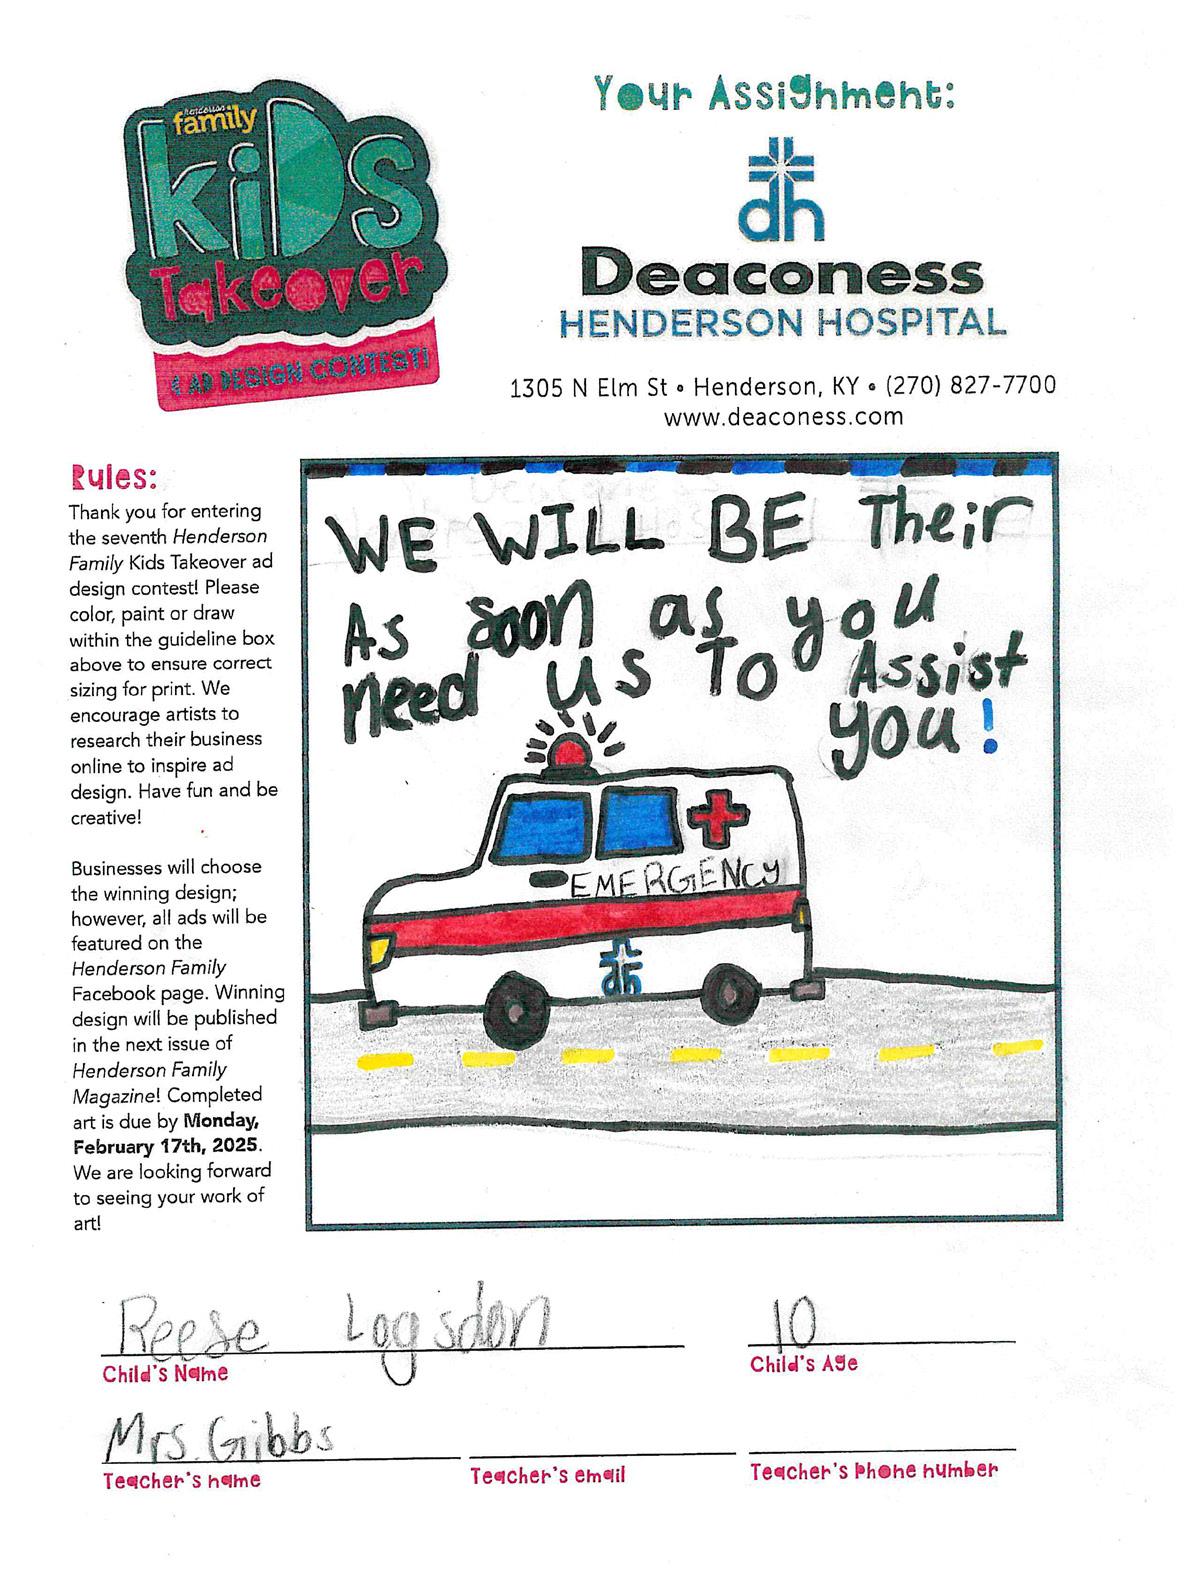 Your Assignment:
henderson
family
kids
Takeover
AD DESIGN CONTEST!
dh
Deaconess
HENDERSON HOSPITAL
1305 N Elm St • Henderson, KY • (270) 827-7700
www.deaconess.com
Rules:
Thank you for entering
the seventh Henderson
Family Kids Takeover ad
design contest! Please
color, paint or draw
within the guideline box
above to ensure correct
sizing for print. We
encourage artists to
research their business
online to inspire ad
design. Have fun and be
creative!
Businesses will choose
the winning design;
however, all ads will be
featured on the
Henderson Family
Facebook page. Winning
design will be published
in the next issue of
Henderson Family
Magazine! Completed
art is due by Monday,
February 17th, 2025.
We are looking forward
to seeing your work of
art!
WE WILL BE Their
As soon as you
need us To Assist
you!
EMERGENCY
dh
Reese Logsdon 10
Child's Name Child's Age
Mrs. Gibbs
Teacher's name Teacher's email Teacher's Phone number